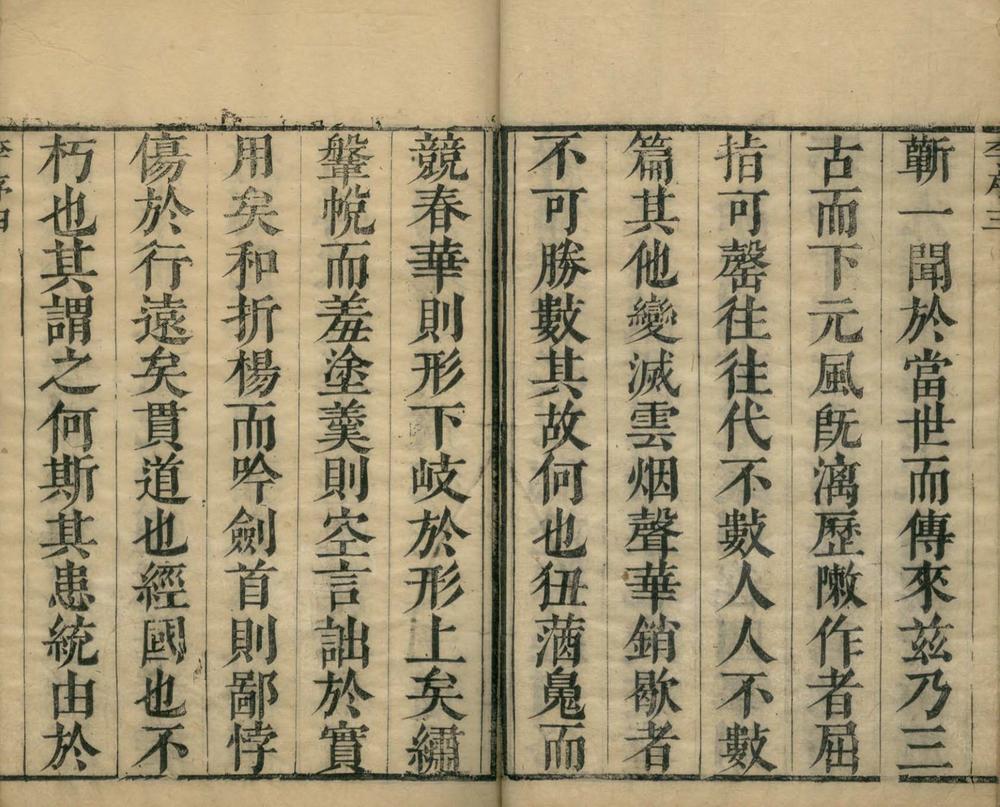 李序三
蘄一聞於當世而傳來茲乃三
古而下元風旣漓歷噉作者屈
指可罄往往代不數人人不數
篇其他變滅雲烟聲華銷歇者
不可勝數其故何也狃蕕鳧而
競春華則形下岐於形上矣繡
鞶帨而羞塗羹則空言詘於實
用矣和折楊而吟劍首則鄙悖
傷於行遠矣貫道也經國也不
朽也其謂之何斯其患統由於
李序四